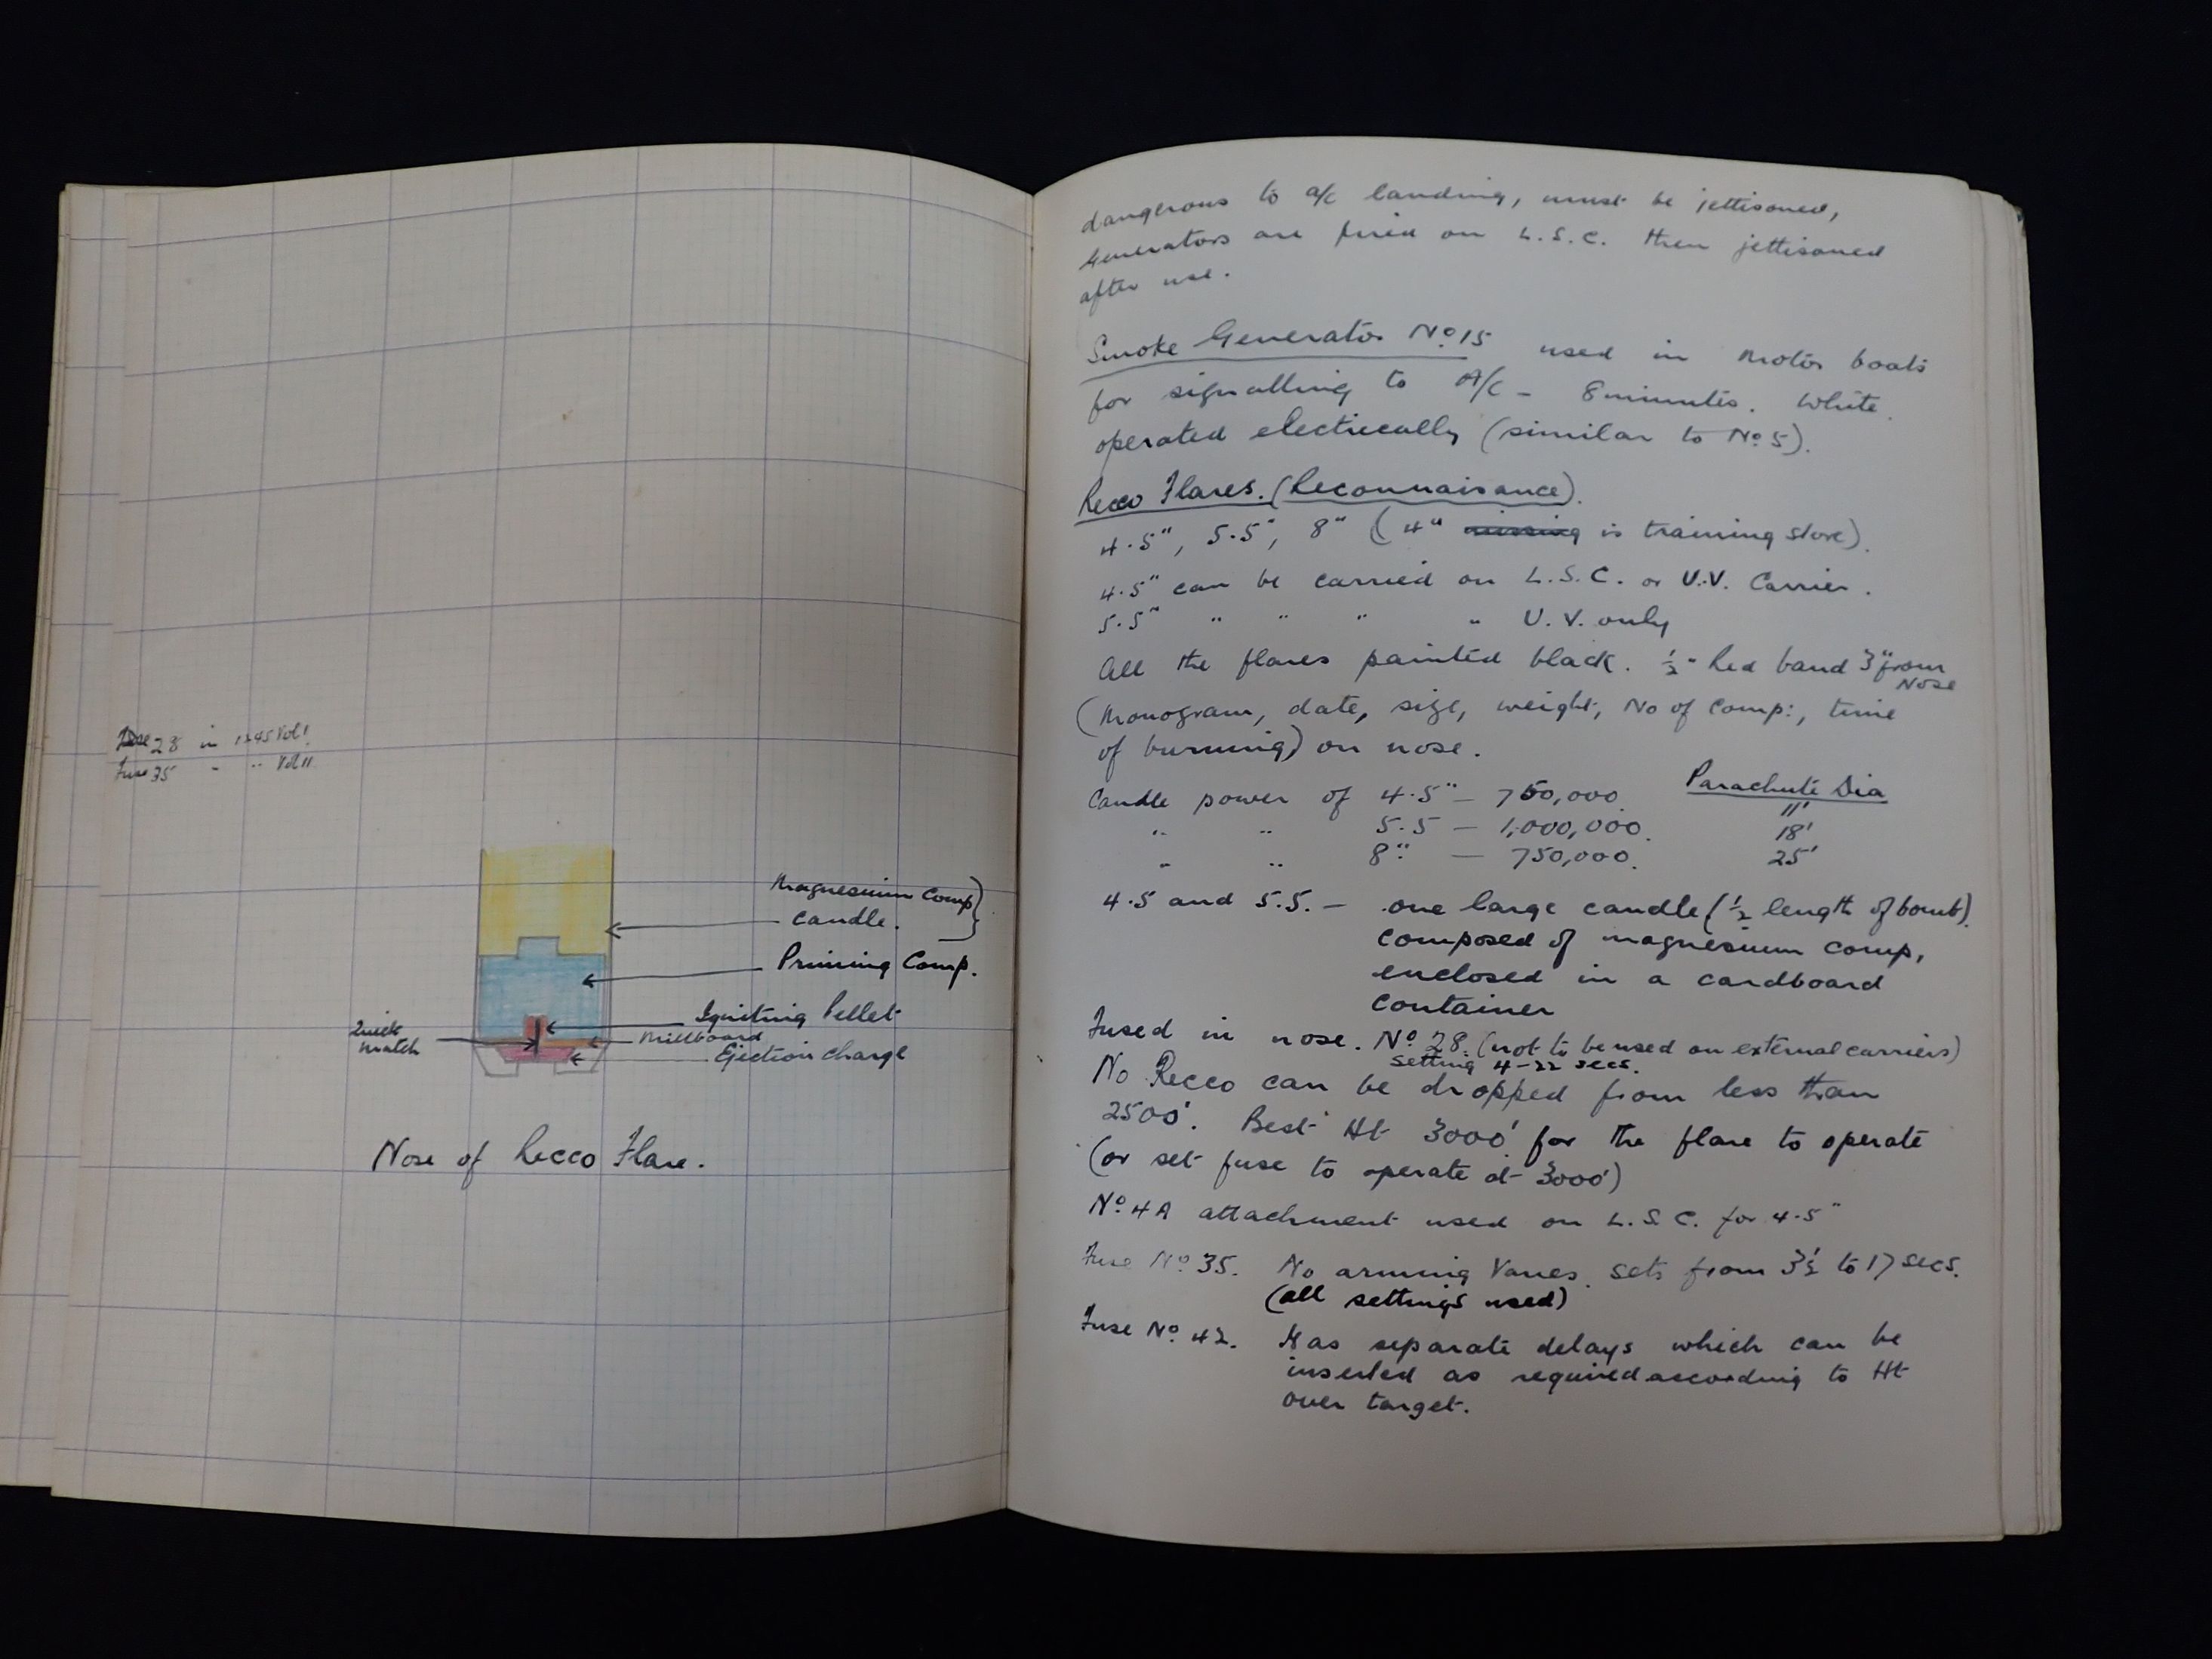 Fuse 28 in 1245 Vol I.
Fuse 35 - " Vol II
Magnesium Comp
Candle.
Priming Comp.
Igniting Pellet
Quick
match
Millboard
Ejection Charge
Nose of Recco Flare.
dangerous to a/c landing, must be jettisoned,
Generators are fired on L.S.C. then jettisoned
after use.
Smoke Generator No 15 used in motor boats
for signalling to A/C - 8 minutes. White.
operated electrically (similar to No 5).
Recco Flares. (Reconnaisance).
4.5", 5.5", 8" (4" is training store).
4.5" can be carried on L.S.C. or U.V. Carrier.
5.5" " " " " U.V. only
All the flares painted black. ½" Red band 3" from
Nose
(Monogram, date, size, weight, No of Comp:, time
of burning) on nose.
Candle power of 4.5" - 750,000. Parachute Dia
11'
" " 5.5 - 1,000,000. 18'
" " 8" - 750,000. 25'
4.5 and 5.5. - one large candle (½ length of bomb).
composed of magnesium comp,
enclosed in a cardboard
container
Fused in nose. No 28. (not to be used on external carriers)
setting 4-22 secs.
No Recco can be dropped from less than
2500'. Best Ht 3000' for the flare to operate
(or set fuse to operate at 3000')
No 4A attachment used on L.S.C. for 4.5"
Fuse No 35. No arming Vanes. Sets from 3½ to 17 secs.
(all settings used)
Fuse No 42. Has separate delays which can be
inserted as required according to Ht
over target.